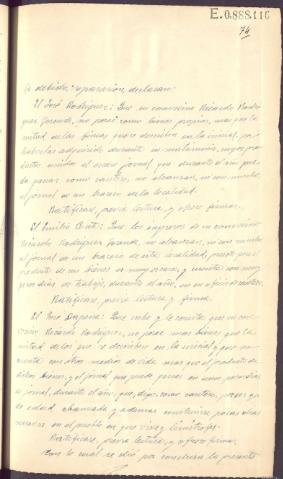 E.0.888.116
74
la debida separación, declaran:
El José Rodríguez: Que su convecino Ricardo Rodrí-
guez, no posee como bienes propios, mas que la
mitad de las fincas que se describen en la inicial, por
haberlas adquirido durante su matrimonio, cuyos pro-
ductos unidos al escaso jornal que durante el año pue-
da ganar como cantero, no alcanzan, ni con mucho,
al jornal de un bracero de la localidad.
Ratifícase, previa lectura, y ofrece firmar.
El Emilio: Que los ingresos de su convecino
Ricardo Rodríguez no alcanzan, ni con mucho
al jornal de un bracero de esta localidad, puesto que el
producto de sus bienes es muy escaso, y cuenta con muy
pocos días de trabajo, durante el año, en su oficio de cantero.
Ratifícase, previa lectura y firma.
El José: Que sabe y le consta que su con-
vecino Ricardo Rodríguez, no posee mas bienes que la
mitad de los que se describen en la inicial y que no
cuenta con otros medios de vida mas que el producto de
dichos bienes, y el jornal que pueda ganar en unos pocos días
de jornal, durante el año, que, dejó como cantero, pues ya
de edad avanzada y ademas
en el pueblo en que vive y limítrofes.
Ratifícase, previa lectura, y ofrece firmar.
Con lo cual se dió por conclusa la presente